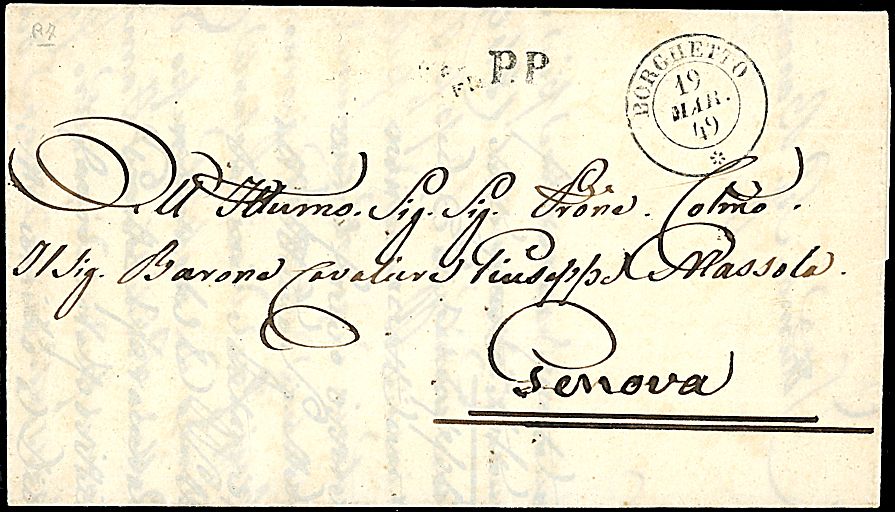 R7
P.P
BORGHETTO
19
MAR.
49
All Illumo. Sig. Sig. Prõne. Colmo.
Il Sig. Barone Cavaliere Giuseppe Massola.
Genova